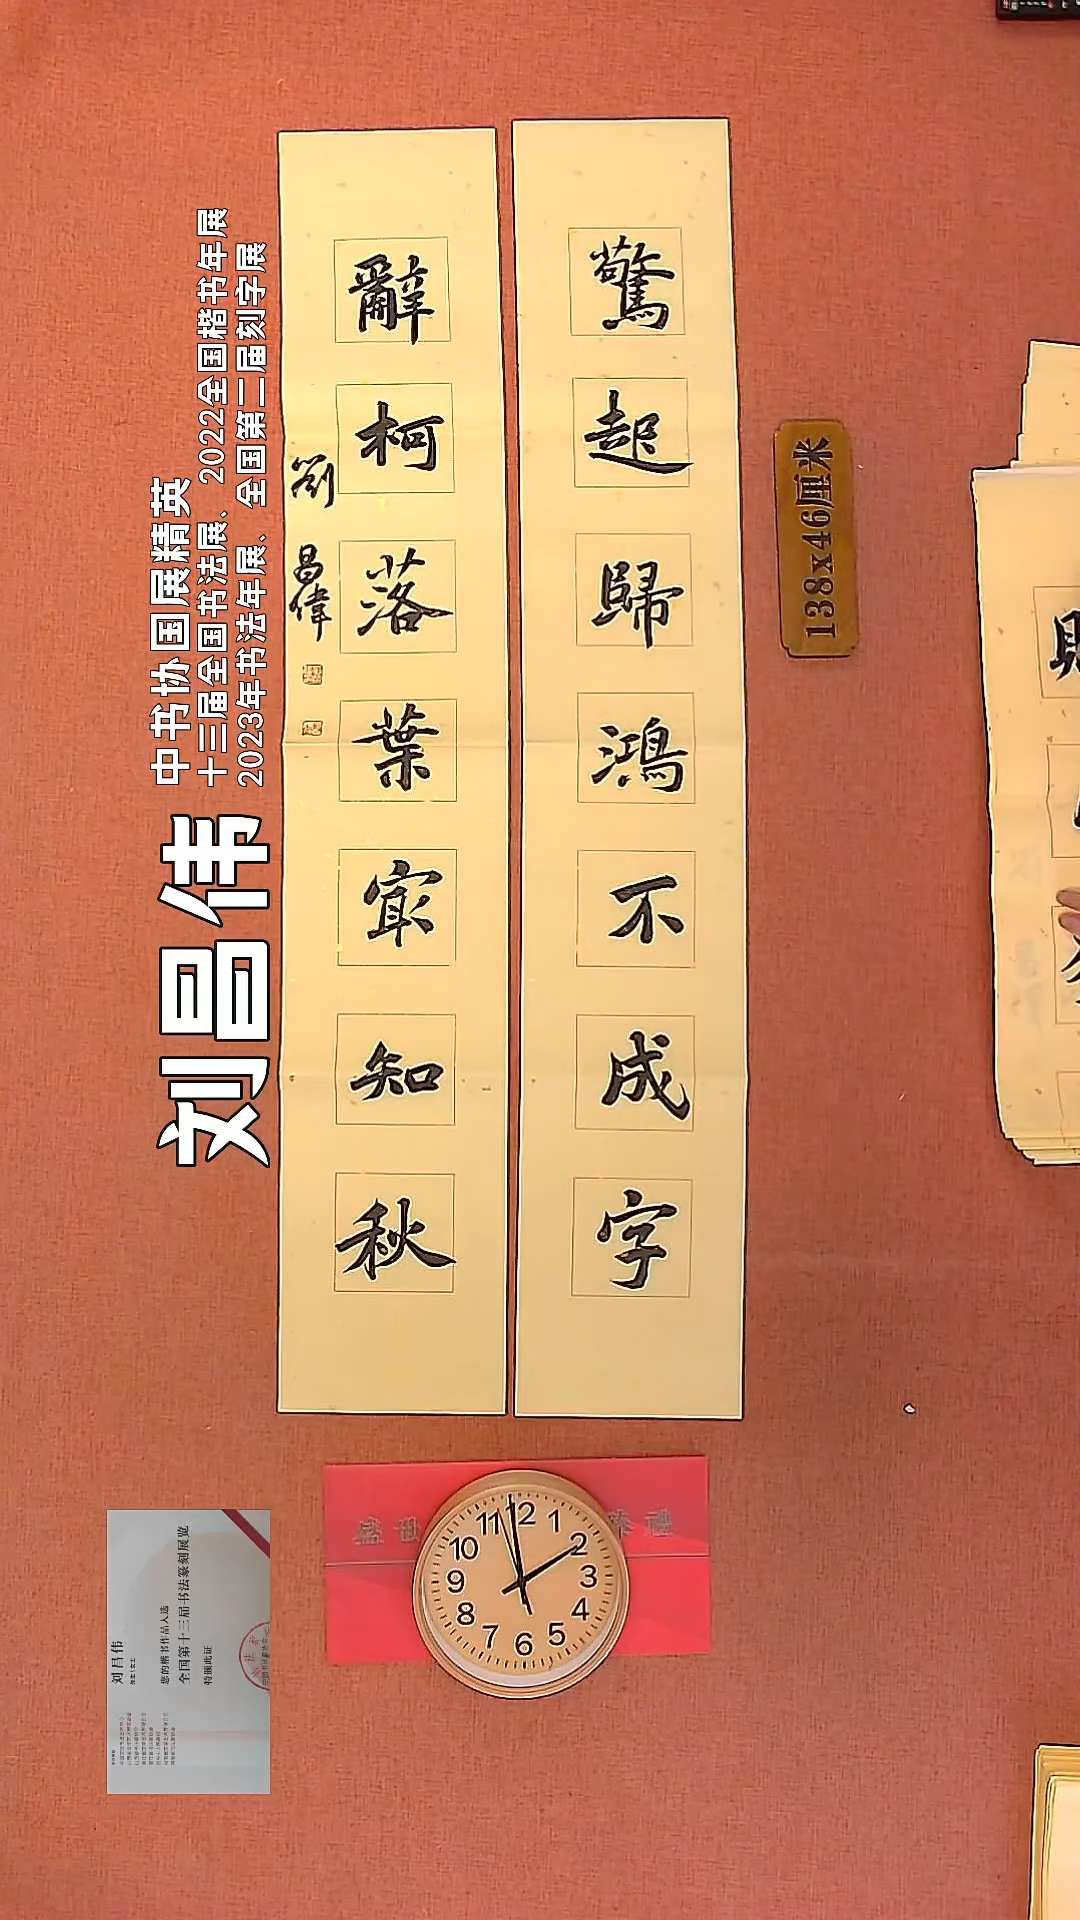 驚起歸鴻不成字
辭柯落葉㝡知秋
劉昌偉
138x46厘米
刘昌伟
中书协国展精英
十三届全国书法展、2022全国楷书年展
2023年书法年展、全国第二届刻字展
12
1
2
3
4
5
6
7
8
9
10
11
刘昌伟
您的楷书作品入选
全国第十三届书法篆刻展览
特颁此证